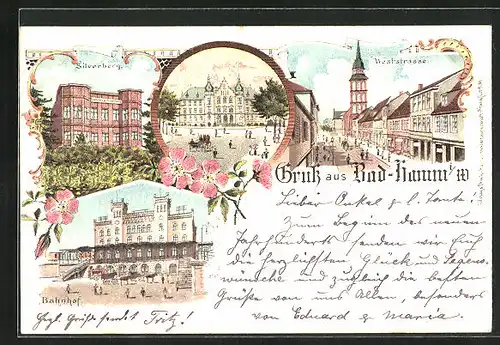 Silverberg.
Weststrasse
Gruß aus Bad-Hamm i/W
Lieber Onkel & l. Tante!
Zum Beginn des neuen
Jahrhunderts senden wir Euch
die herzlichsten Glück und Segens-
wünsche und zugleich die besten
Grüße von uns Allen, besonders
von Eduard & Maria.
Bahnhof.
Hzgl. Grüße sendet Fritz!